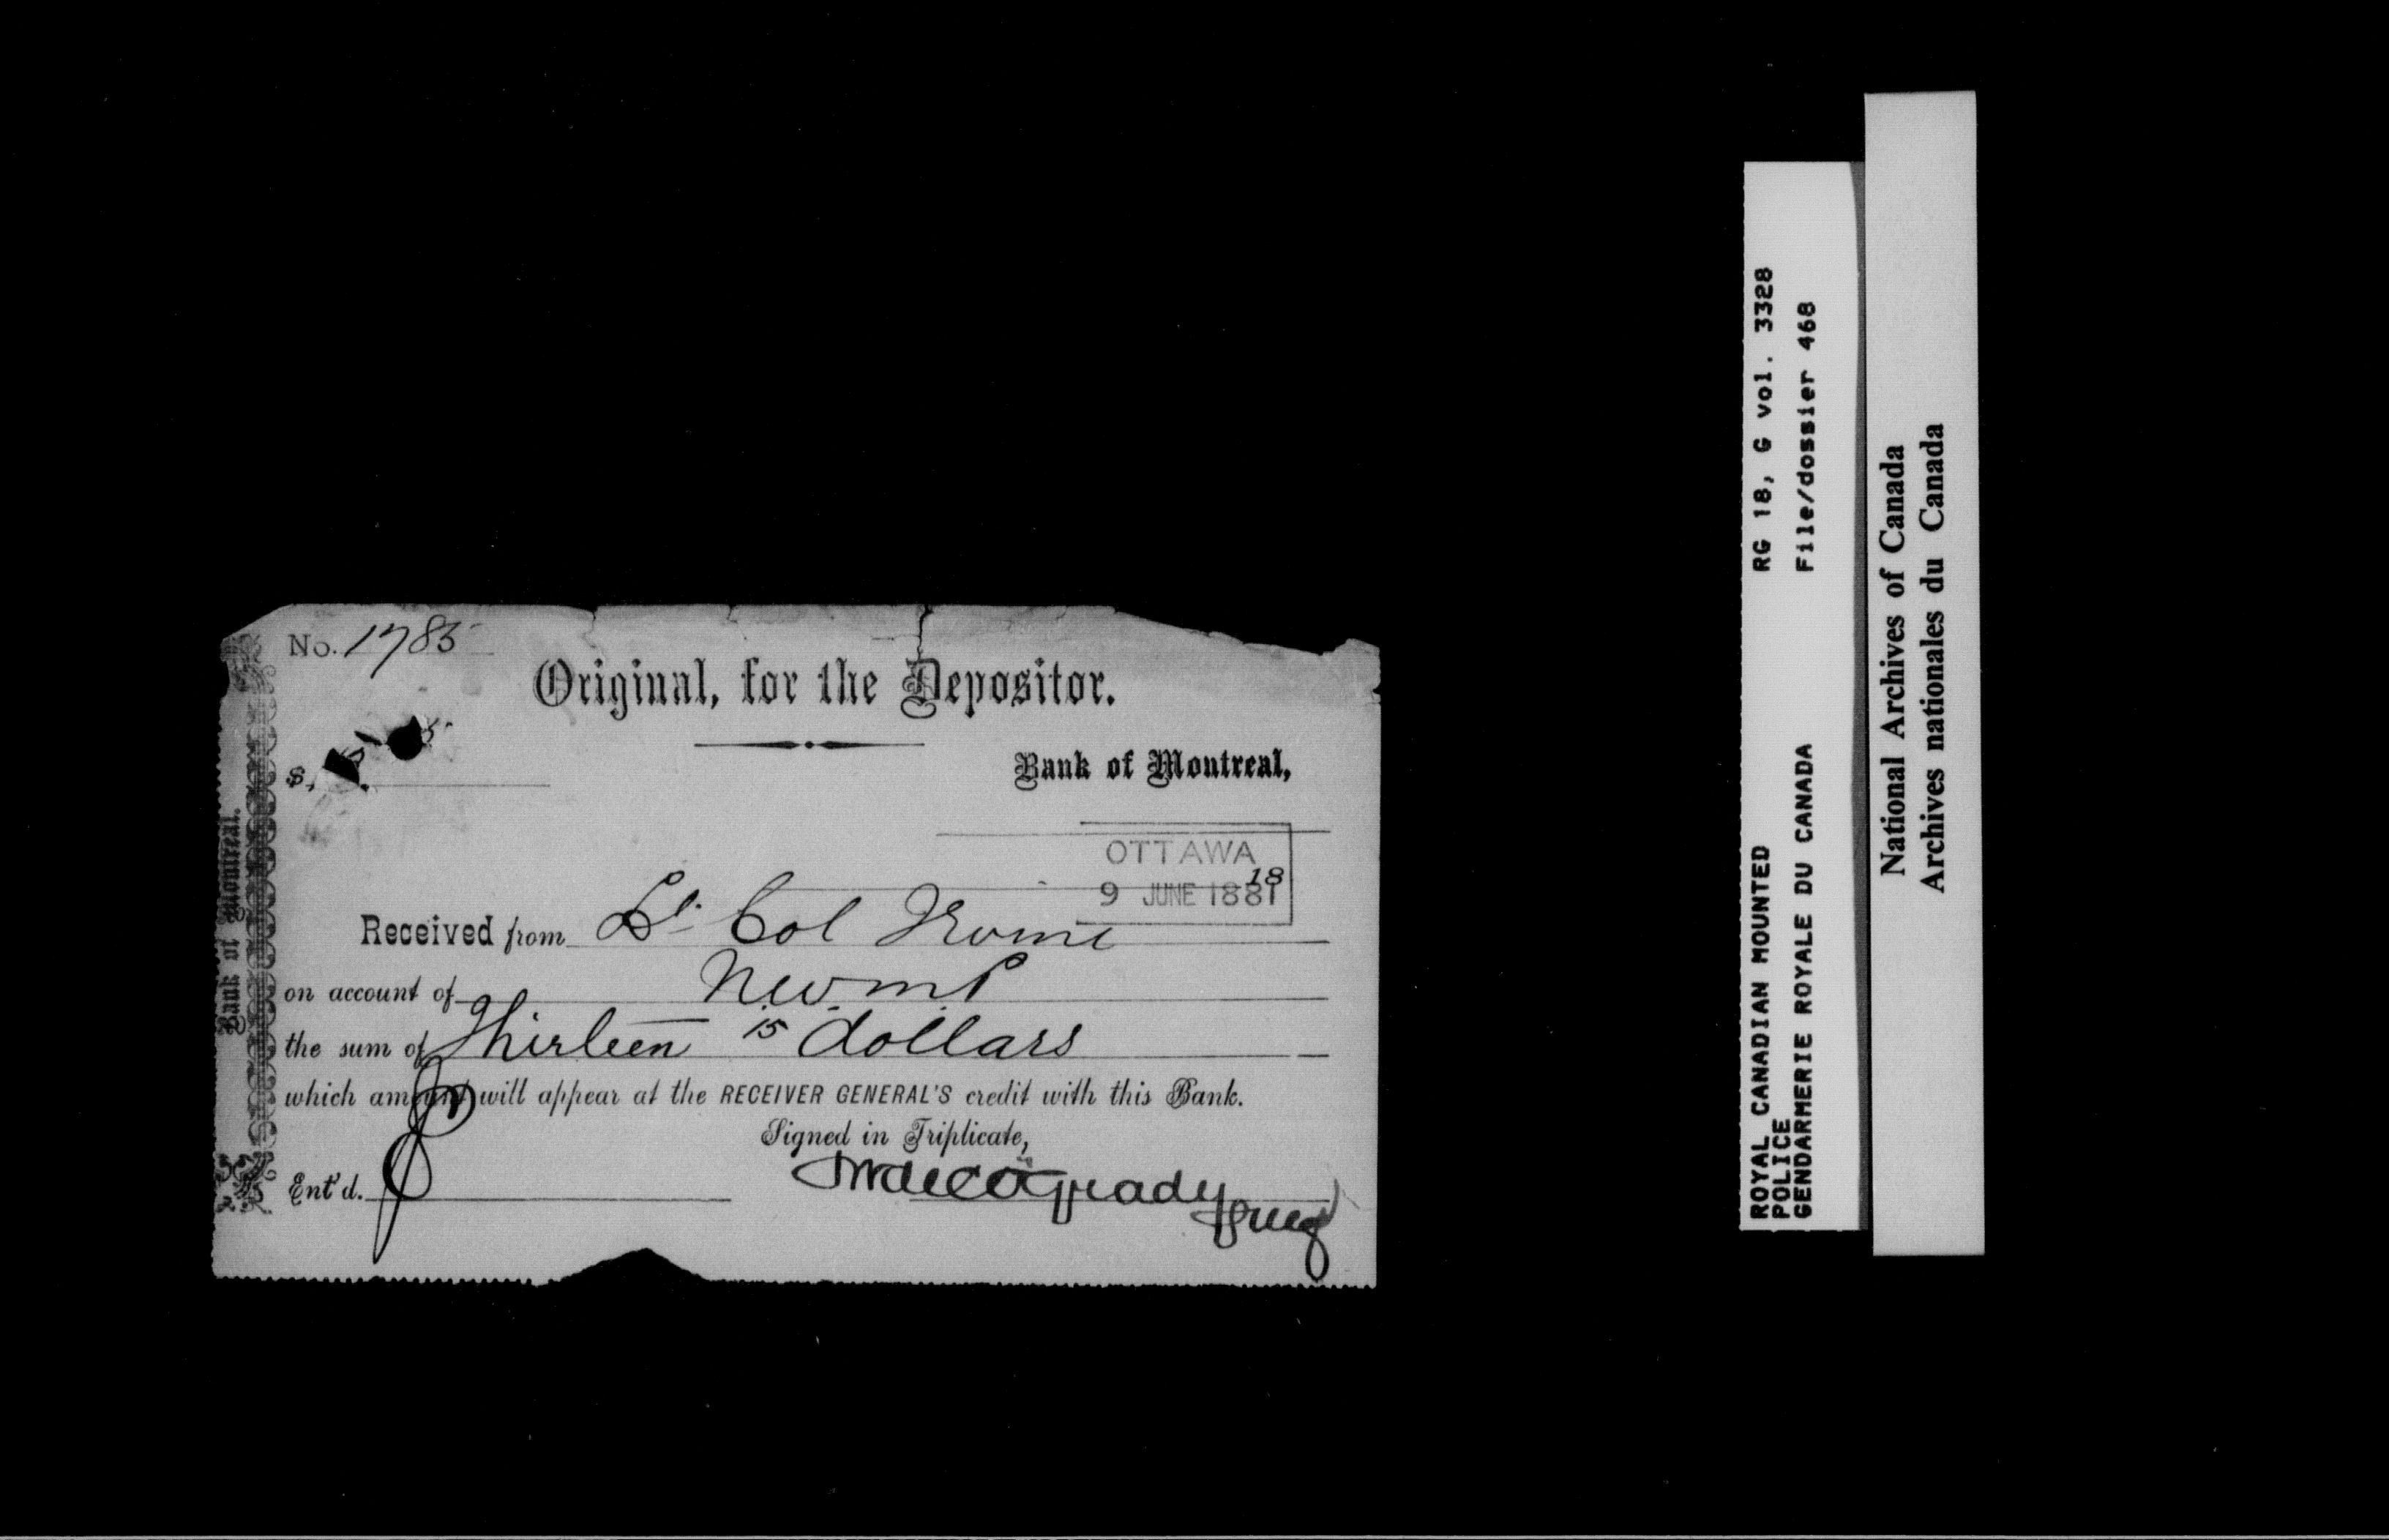 No. 1785
Original, for the Depositor.
$
Bank of Montreal,
OTTAWA
18
9 JUNE 1881
Received from Lt. Col Irvine
on account of N.W.M.P
the sum of Thirteen 15 dollars
which amount will appear at the RECEIVER GENERAL'S credit with this Bank.
Signed in Triplicate,
Ent'd.
Bank of Montreal.
ROYAL CANADIAN MOUNTED POLICE
GENDARMERIE ROYALE DU CANADA
RG 18, G vol. 3328
File/dossier 468
National Archives of Canada
Archives nationales du Canada